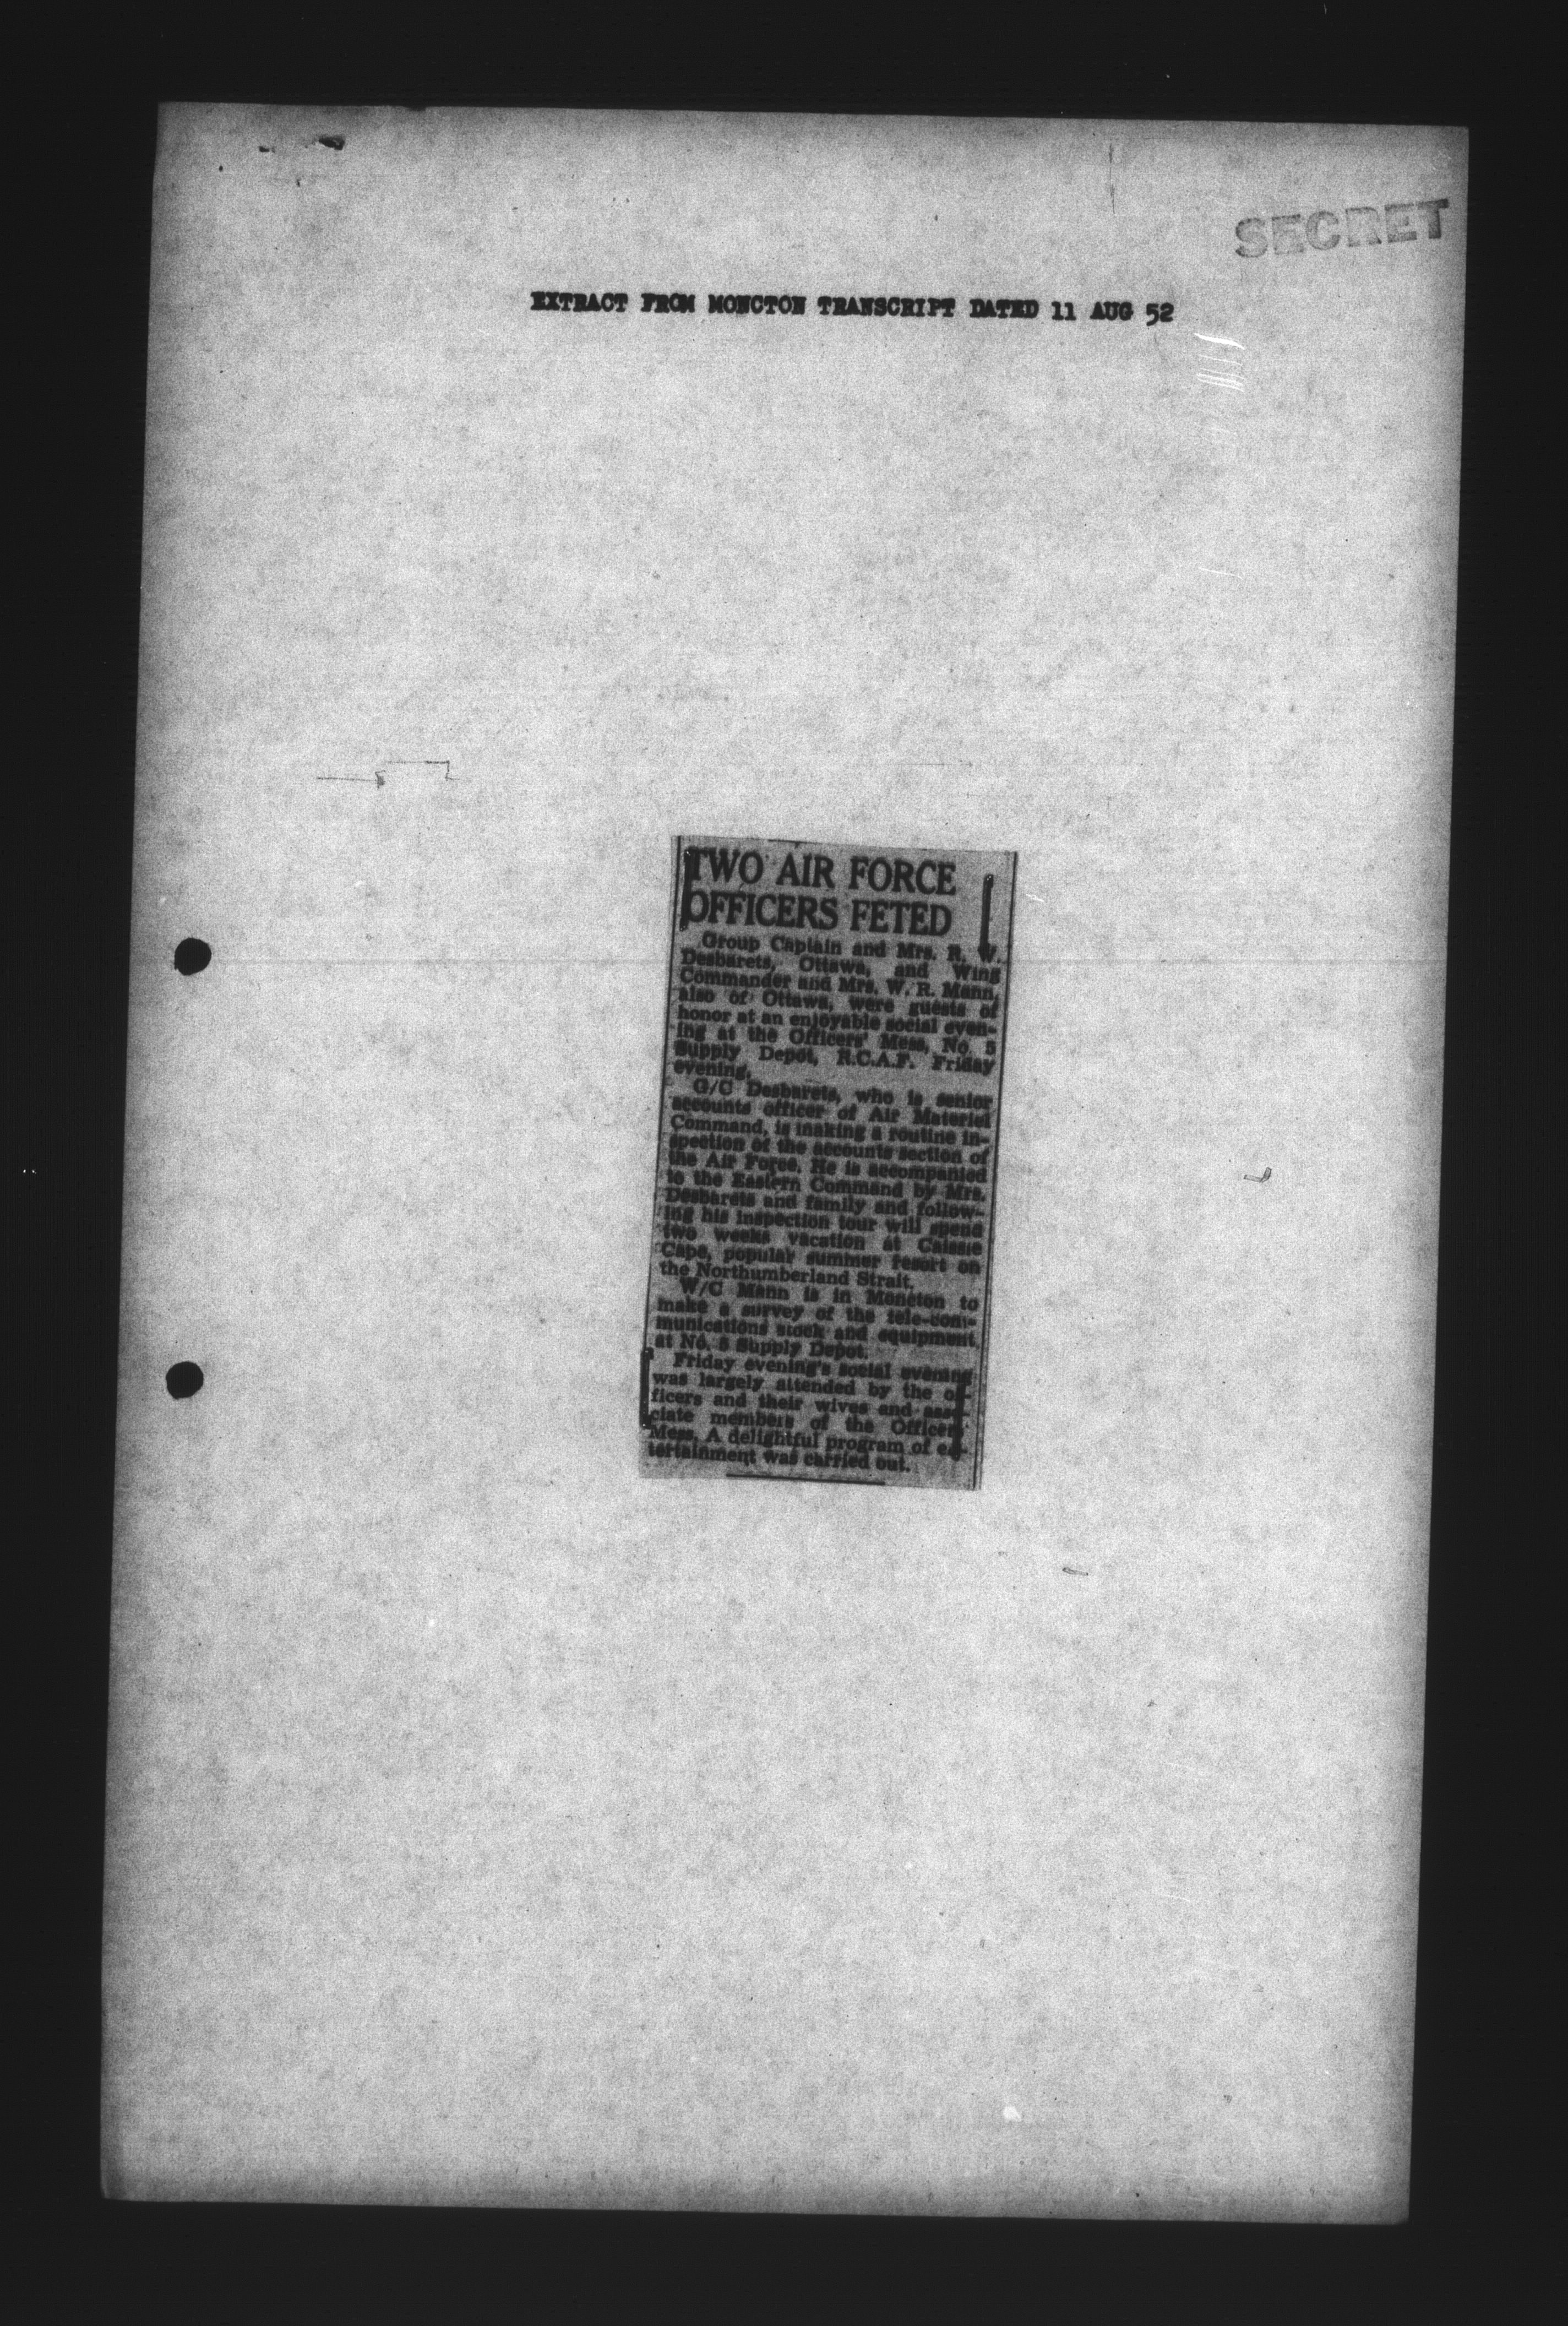 SECRET
EXTRACT FROM MONCTON TRANSCRIPT DATED 11 AUG 52
TWO AIR FORCE
OFFICERS FETED
Group Captain and Mrs. R. W.
Desbarets, Ottawa, and Wing
Commander and Mrs. W. R. Mann,
also of Ottawa, were guests of
honor at an enjoyable social even-
ing at the Officers' Mess, No. 5
Supply Depot, R.C.A.F. Friday
evening.
G/C Desbarets, who is senior
accounts officer of Air Materiel
Command, is making a routine in-
spection of the accounts section of
the Air Force. He is accompanied
to the Eastern Command by Mrs.
Desbarets and family and follow-
ing his inspection tour will spend
two weeks vacation at Caissie
Cape, popular summer resort on
the Northumberland Strait.
W/C Mann is in Moncton to
make a survey of the tele-com-
munications stock and equipment
at No. 5 Supply Depot.
Friday evening's social evening
was largely attended by the of-
ficers and their wives and asso-
ciate members of the Officers
Mess. A delightful program of en-
tertainment was carried out.